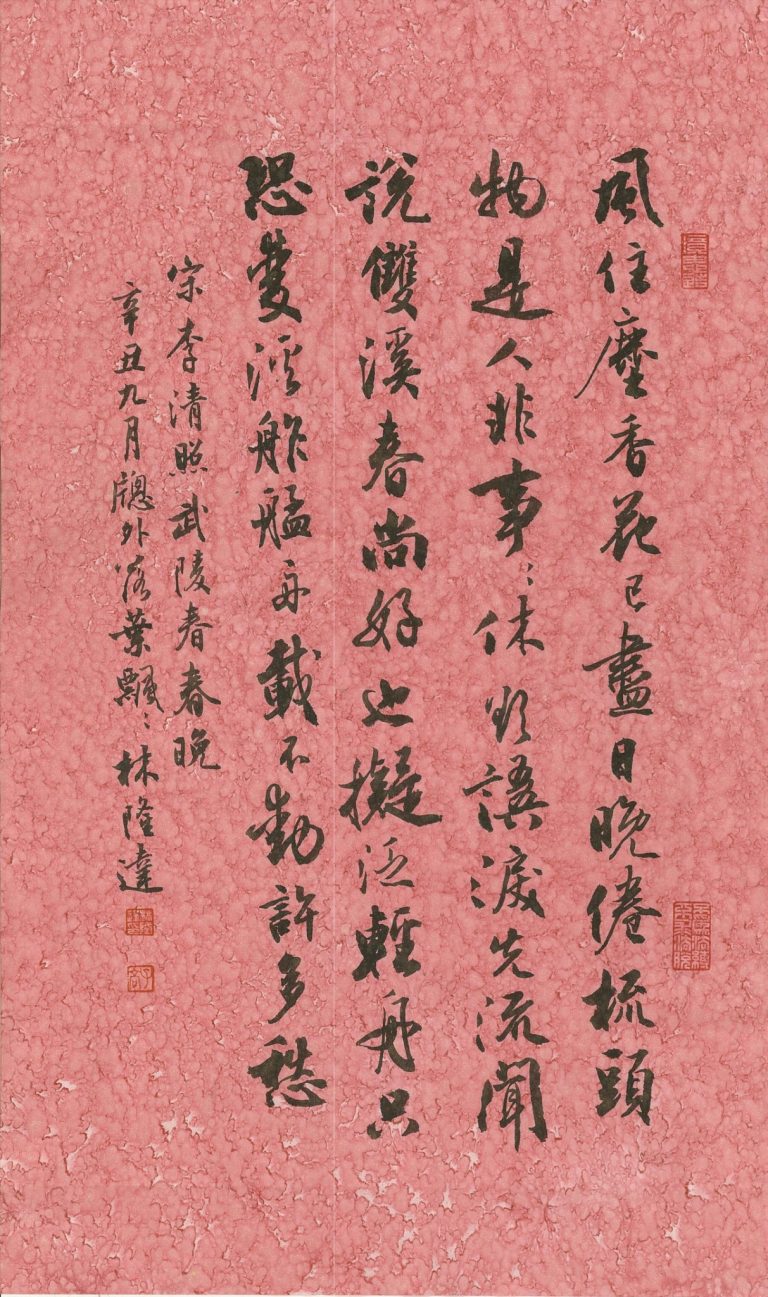 風住塵香花已盡日晚倦梳頭
物是人非事〻休欲語淚先流聞
說雙溪春尚好也擬泛輕舟只
恐雙溪舴艋舟載不動許多愁
宋李清照武陵春春晚
辛丑九月牕外落葉飄〻林隆達